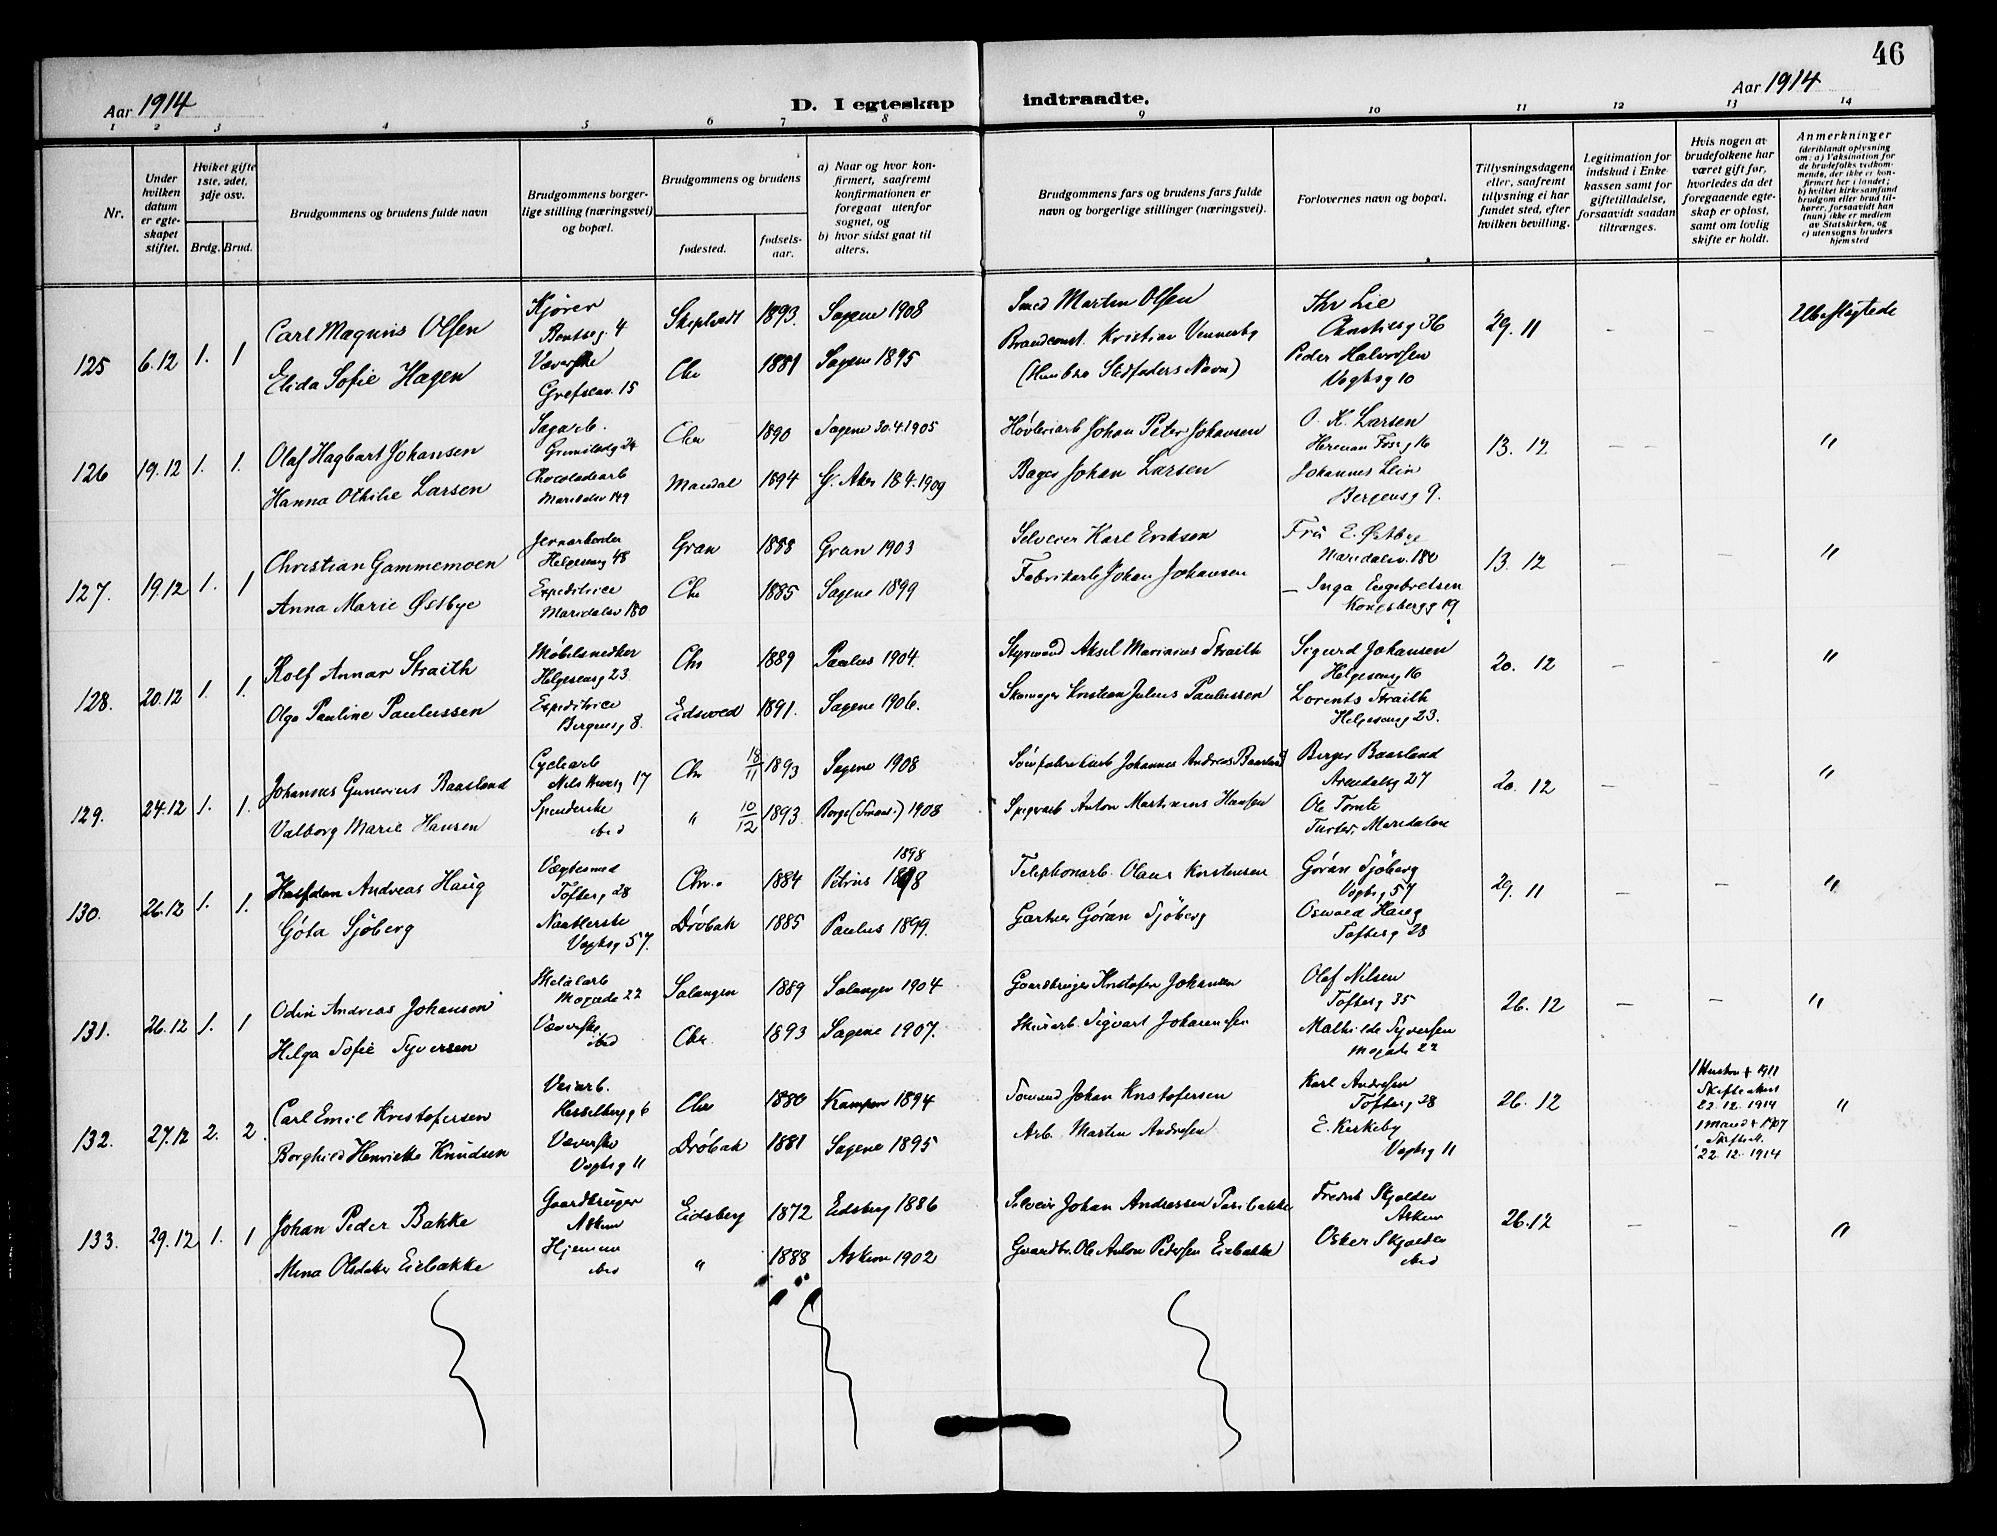 46
Aar 1914
D. I egteskap indtraadte.
Aar 1914
1 2 3 4 5 6 7 8 9 10 11 12 13 14
Nr.
Under hvilken datum er egteskapet stiftet.
Hviket gifte 1ste, 2det, 3dje osv.
Brdg. Brud.
Brudgommens og brudens fulde navn
Brudgommens borgerlige stilling (næringsvei) og bopæl.
Brudgommens og brudens
fødested. fødselsaar.
a) Naar og hvor konfirmert, saafremt konfirmationen er foregaat utenfor sognet, og
b) hvor sidst gaat til alters.
Brudgommens fars og brudens fars fulde navn og borgerlige stillinger (næringsvei).
Forlovernes navn og bopæl.
Tillysningsdagene eller, saafremt tillysning ei har fundet sted, efter hvilken bevilling.
Legitimation for indskud i Enkekassen samt for giftetilladelse, forsaavidt saadan tiltrænges.
Hvis nogen av brudefolkene har været gift før, hvorledes da det foregaaende egteskap er opløst, samt om lovlig skifte er holdt.
Anmerkninger (deriblandt oplysning om: a) Vaksination for de brudefolks vedkommende, der ikke er konfirmert her i landet; b) hvilket kirkesamfund brudgom eller brud tilhører, forsaavidt han (hun) ikke er medlem av Statskirken, og c) utensogns bruders hjemsted
125 6.12 1. 1
Carl Magnus Olsen Kjører 4 1893. Sagene 1908 Smed Martin Olsen Thv Lie 36 29.11 – – Ubeslegtede
Elida Sofie Hagen Væverske Grefsenv. 15 Chr 1881 Sagene 1895 Kristian Vennerby Peder Halvorsen
(Hun bær Stedfaders Navn) Vogtsg 10
126 19.12 1. 1.
Olaf Hagbart Johansen Sagarb. 24 Chr 1890 Sagene 30.4.1905 Høvleriarb Johan Peter Johansen O. K. Larsen 16 13.12 – – "
Hanna Othilie Larsen Chocoladearb Maridalsv 149 Mandal 1894 G. Aker 18.4.1909 Bager Johan Larsen Johannes Lein
Bergensg 9.
127. 19.12 1. 1
Christian Gammemoen Jernarbeider Helgesensg 48 Gran 1888 Gran 1903 Selveier Karl Eriksen Fru E. Østbye Maridalsv. 180 13.12 – – "
Anna Marie Østbye Expeditrice Maridalsv 180 Chr 1885 Sagene 1899 Fabrikarb Johan Johansen – Inga Engebretsen
Kongsbergg 19
128. 20.12 1. 1.
Rolf Annar Straith Møbelsnedker Helgesensg 23. Chr 1889 Paulus 1904. Styrmand Aksel Marinius Straith Sigurd Johansen Helgesensg 16 20. 12 – – "
Olga Pauline Paulussen Expeditrice Bergensg 8. Eidsvold 1891. Sagene 1906. Skomager Kristian Julius Paulussen Lorents Straith
Helgesensg 23.
129. 24.12 1. 1.
Johannes Gunerius Baasland Cyclearb 17 Chr 18/11 1893 Sagene 1908 Johannes Andreas Baasland Berger Baasland Arendalsg 27 20. 12 – – "
Valborg Marie Hansen Spinderske ibid " 10/12 1893 Borge (Smaal.) 1908 Spigerarb Anton Martinius Hansen Ole Tomte
Maridalen
130. 26.12 1. 1.
Halfdan Andreas Haug Vægtesmed Toftesg 28 Chr. 1884 Petrus 1898 1898 Telephonarb. Olaus Kristensen Göran Sjöberg Vogtsg 57 29 11 – – "
Göta Sjöberg Vogtsg 57. Drøbak 1885 Paulus 1899. Gartner Göran Sjöberg Osvald Haug
Toftesg 28
131. 26.12 1. 1
Odin Andreas Johansen Metalarb Mogade 22 Salangen 1889 Salangen 1904 Gaardbruger Kristofer Johansen Olaf Nilsen Toftesg 35 26.12 – – "
Helga Sofie Syversen Væverske ibid Chr. 1893 Sagene 1907. Sigvart Mathilde Syversen
Mogade 22
132. 27.12 2. 2.
Carl Emil Kristofersen Veiarb. Hesselbergg 6 Chr 1880 Kampen 1894 Sømand Johan Kristofersen Karl Andresen Toftesg 28 26.12 – 1 Hustru † 1911 Skifteattest 22.12.1914 "
Borghild Henriette Knudsen Væverske Vogtsg 11 Drøbak 1881 Sagene 1895 Arb. Martin Andresen E. Kirkeby 1 Mand † 1907 22.12.1914
Vogtsg 11
133. 29.12 1. 1
Johan Peder Bakke Gaardbruger Askim Eidsberg 1872 Eidsberg 1886 Selveier Johan Andreassen Fredrik Skjolden Askim 26.12 – – "
Mina Olsdatter Eidbakke Hjemme ibid " 1888 Askim 1902 Gaardbr. Ole Anton Pedersen Eidbakke Oskar Skjolden
ibid